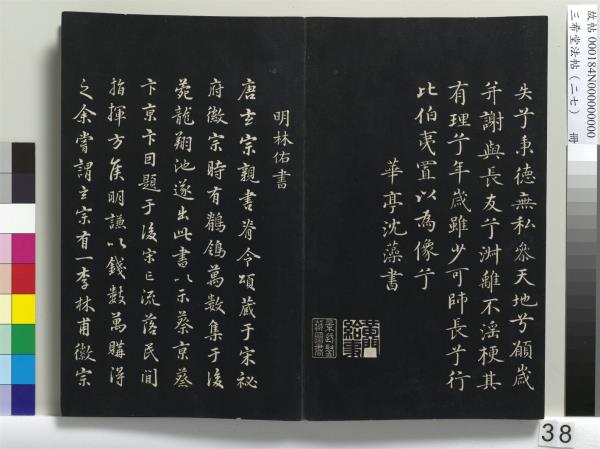 失兮秉德無私參天地兮願歲
并謝與長友兮淑離不淫梗其
有理兮年歲雖少可師長兮行
比伯夷置以為像兮
華亭沈藻書
明林佑書
唐玄宗親書脊令頌藏于宋秘
府徽宗時有鶺鴒萬數集于後
苑龍翔池遂出此書以示蔡京蔡
卞京卞因題于後宋亡流落民間
指揮方侯明謙以錢數萬購得
之余嘗謂玄宗有一李林甫徽宗
故帖 000184N000000000
三希堂法帖(二七) 冊
38